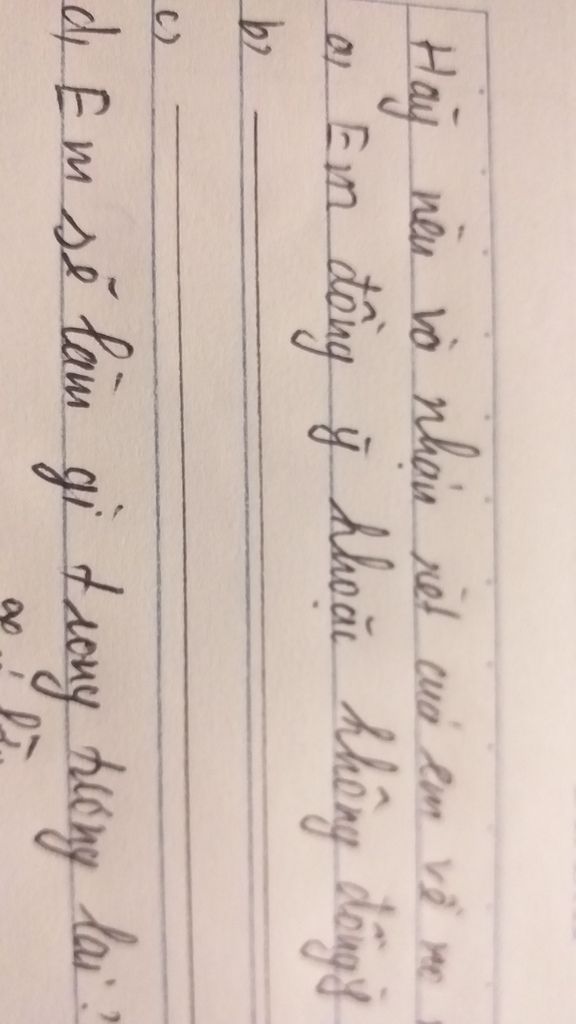 Hãy nêu và nhận xét của em về
a, Em đồng ý hoặc không đồng ý
b,
c,
d, Em sẽ làm gì trong tương lai?